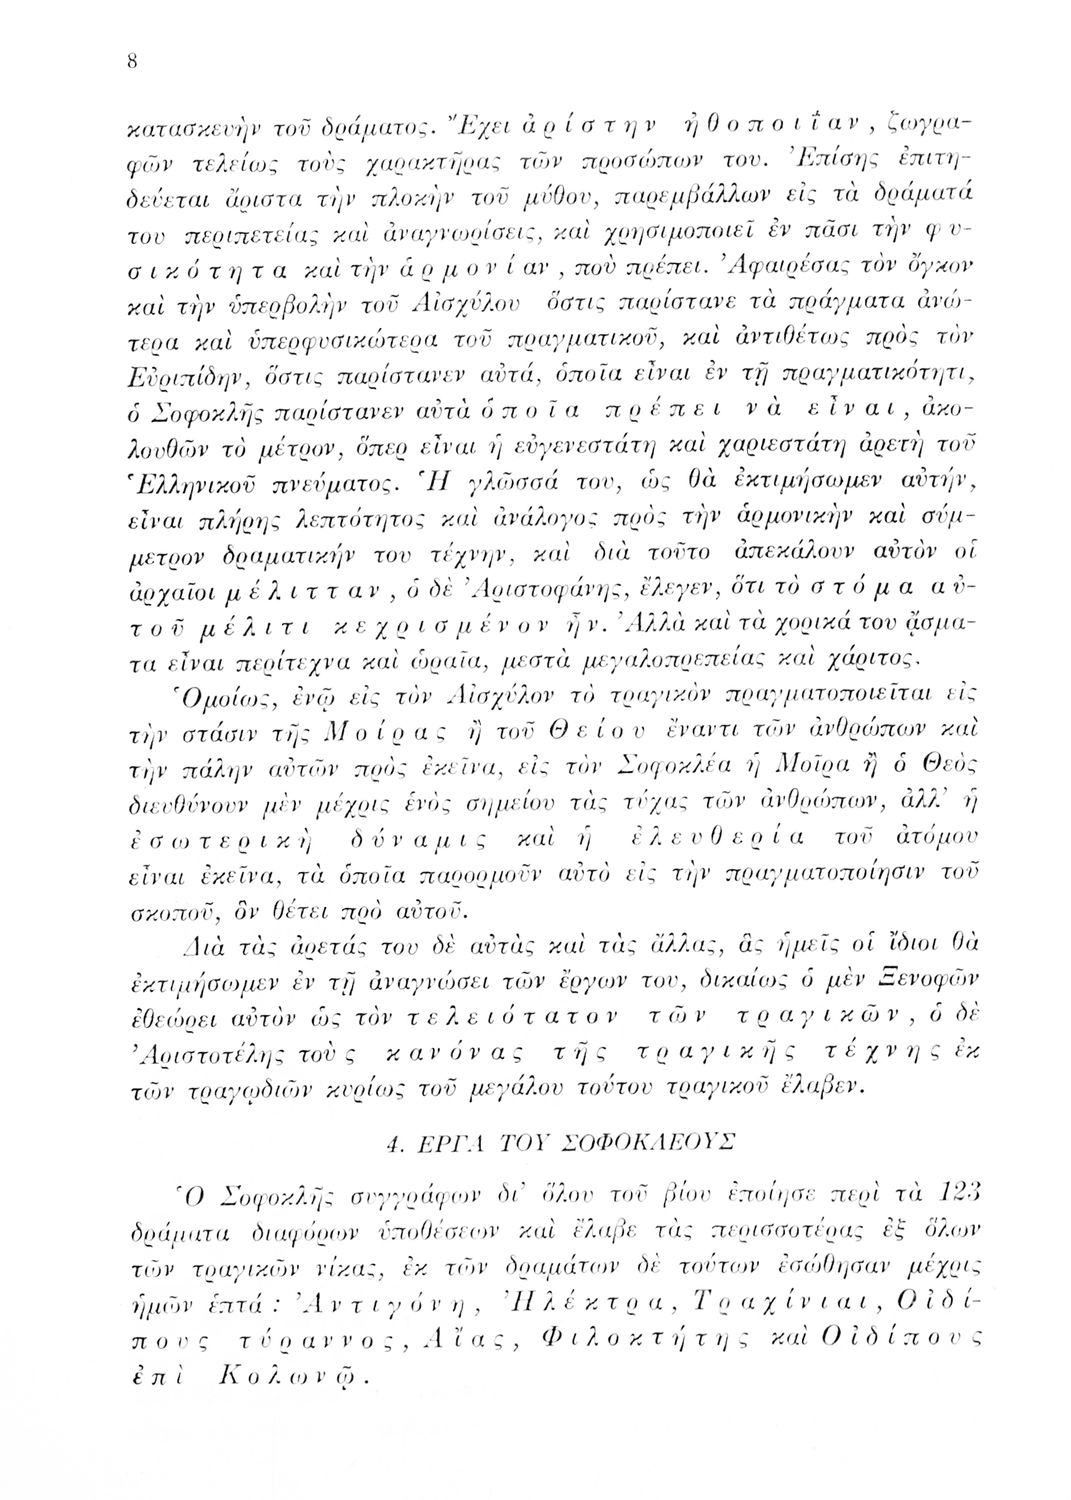 8
κατασκευὴν τοῦ δράματος. Ἔχει ἀρίστην ἠθοποιΐαν, ζωγρα-
φῶν τελείως τοὺς χαρακτῆρας τῶν προσώπων του. Ἐπίσης ἐπιτη-
δεύεται ἄριστα τὴν πλοκὴν τοῦ μύθου, παρεμβάλλων εἰς τὰ δράματά
του περιπετείας καὶ ἀναγνωρίσεις, καὶ χρησιμοποιεῖ ἐν πᾶσι τὴν φυ-
σικότητα καὶ τὴν ἁρμονίαν, ποὺ πρέπει. Ἀφαιρέσας τὸν ὄγκον
καὶ τὴν ὑπερβολὴν τοῦ Αἰσχύλου ὅστις παρίστανε τὰ πράγματα ἀνώ-
τερα καὶ ὑπερφυσικώτερα τοῦ πραγματικοῦ, καὶ ἀντιθέτως πρὸς τὸν
Εὐριπίδην, ὅστις παρίστανεν αὐτά, ὁποῖα εἶναι ἐν τῇ πραγματικότητι,
ὁ Σοφοκλῆς παρίστανεν αὐτὰ ὁποῖα πρέπει νὰ εἶναι, ἀκο-
λουθῶν τὸ μέτρον, ὅπερ εἶναι ἡ εὐγενεστάτη καὶ χαριεστάτη ἀρετὴ τοῦ
Ἑλληνικοῦ πνεύματος. Ἡ γλῶσσά του, ὡς θὰ ἐκτιμήσωμεν αὐτήν,
εἶναι πλήρης λεπτότητος καὶ ἀνάλογος πρὸς τὴν ἁρμονικὴν καὶ σύμ-
μετρον δραματικήν του τέχνην, καὶ διὰ τοῦτο ἀπεκάλουν αὐτὸν οἱ
ἀρχαῖοι μέλιτταν, ὁ δὲ Ἀριστοφάνης, ἔλεγεν, ὅτι τὸ στόμα αὐ-
τοῦ μέλιτι κεχρισμένον ἦν. Ἀλλὰ καὶ τὰ χορικά του ᾄσμα-
τα εἶναι περίτεχνα καὶ ὡραῖα, μεστὰ μεγαλοπρεπείας καὶ χάριτος.
Ὁμοίως, ἐνῷ εἰς τὸν Αἰσχύλον τὸ τραγικὸν πραγματοποιεῖται εἰς
τὴν στάσιν τῆς Μοίρας ἢ τοῦ Θείου ἔναντι τῶν ἀνθρώπων καὶ
τὴν πάλην αὐτῶν πρὸς ἐκεῖνα, εἰς τὸν Σοφοκλέα ἡ Μοῖρα ἢ ὁ Θεὸς
διευθύνουν μὲν μέχρις ἑνὸς σημείου τὰς τύχας τῶν ἀνθρώπων, ἀλλ' ἡ
ἐσωτερικὴ δύναμις καὶ ἡ ἐλευθερία τοῦ ἀτόμου
εἶναι ἐκεῖνα, τὰ ὁποῖα παρορμοῦν αὐτὸ εἰς τὴν πραγματοποίησιν τοῦ
σκοποῦ, ὃν θέτει πρὸ αὐτοῦ.
Διὰ τὰς ἀρετάς του δὲ αὐτὰς καὶ τὰς ἄλλας, ἃς ἡμεῖς οἱ ἴδιοι θὰ
ἐκτιμήσωμεν ἐν τῇ ἀναγνώσει τῶν ἔργων του, δικαίως ὁ μὲν Ξενοφῶν
ἐθεώρει αὐτὸν ὡς τὸν τελειότατον τῶν τραγικῶν, ὁ δὲ
Ἀριστοτέλης τοὺς κανόνας τῆς τραγικῆς τέχνης ἐκ
τῶν τραγῳδιῶν κυρίως τοῦ μεγάλου τούτου τραγικοῦ ἔλαβεν.
4. ΕΡΓΑ ΤΟΥ ΣΟΦΟΚΛΕΟΥΣ
Ὁ Σοφοκλῆς συγγράφων δι' ὅλου τοῦ βίου ἐποίησε περὶ τὰ 123
δράματα διαφόρων ὑποθέσεων καὶ ἔλαβε τὰς περισσοτέρας ἐξ ὅλων
τῶν τραγικῶν νίκας, ἐκ τῶν δραμάτων δὲ τούτων ἐσώθησαν μέχρις
ἡμῶν ἑπτά: Ἀντιγόνη, Ἠλέκτρα, Τραχίνιαι, Οἰδί-
πους τύραννος, Αἴας, Φιλοκτήτης καὶ Οἰδίπους
ἐπὶ Κολωνῷ.